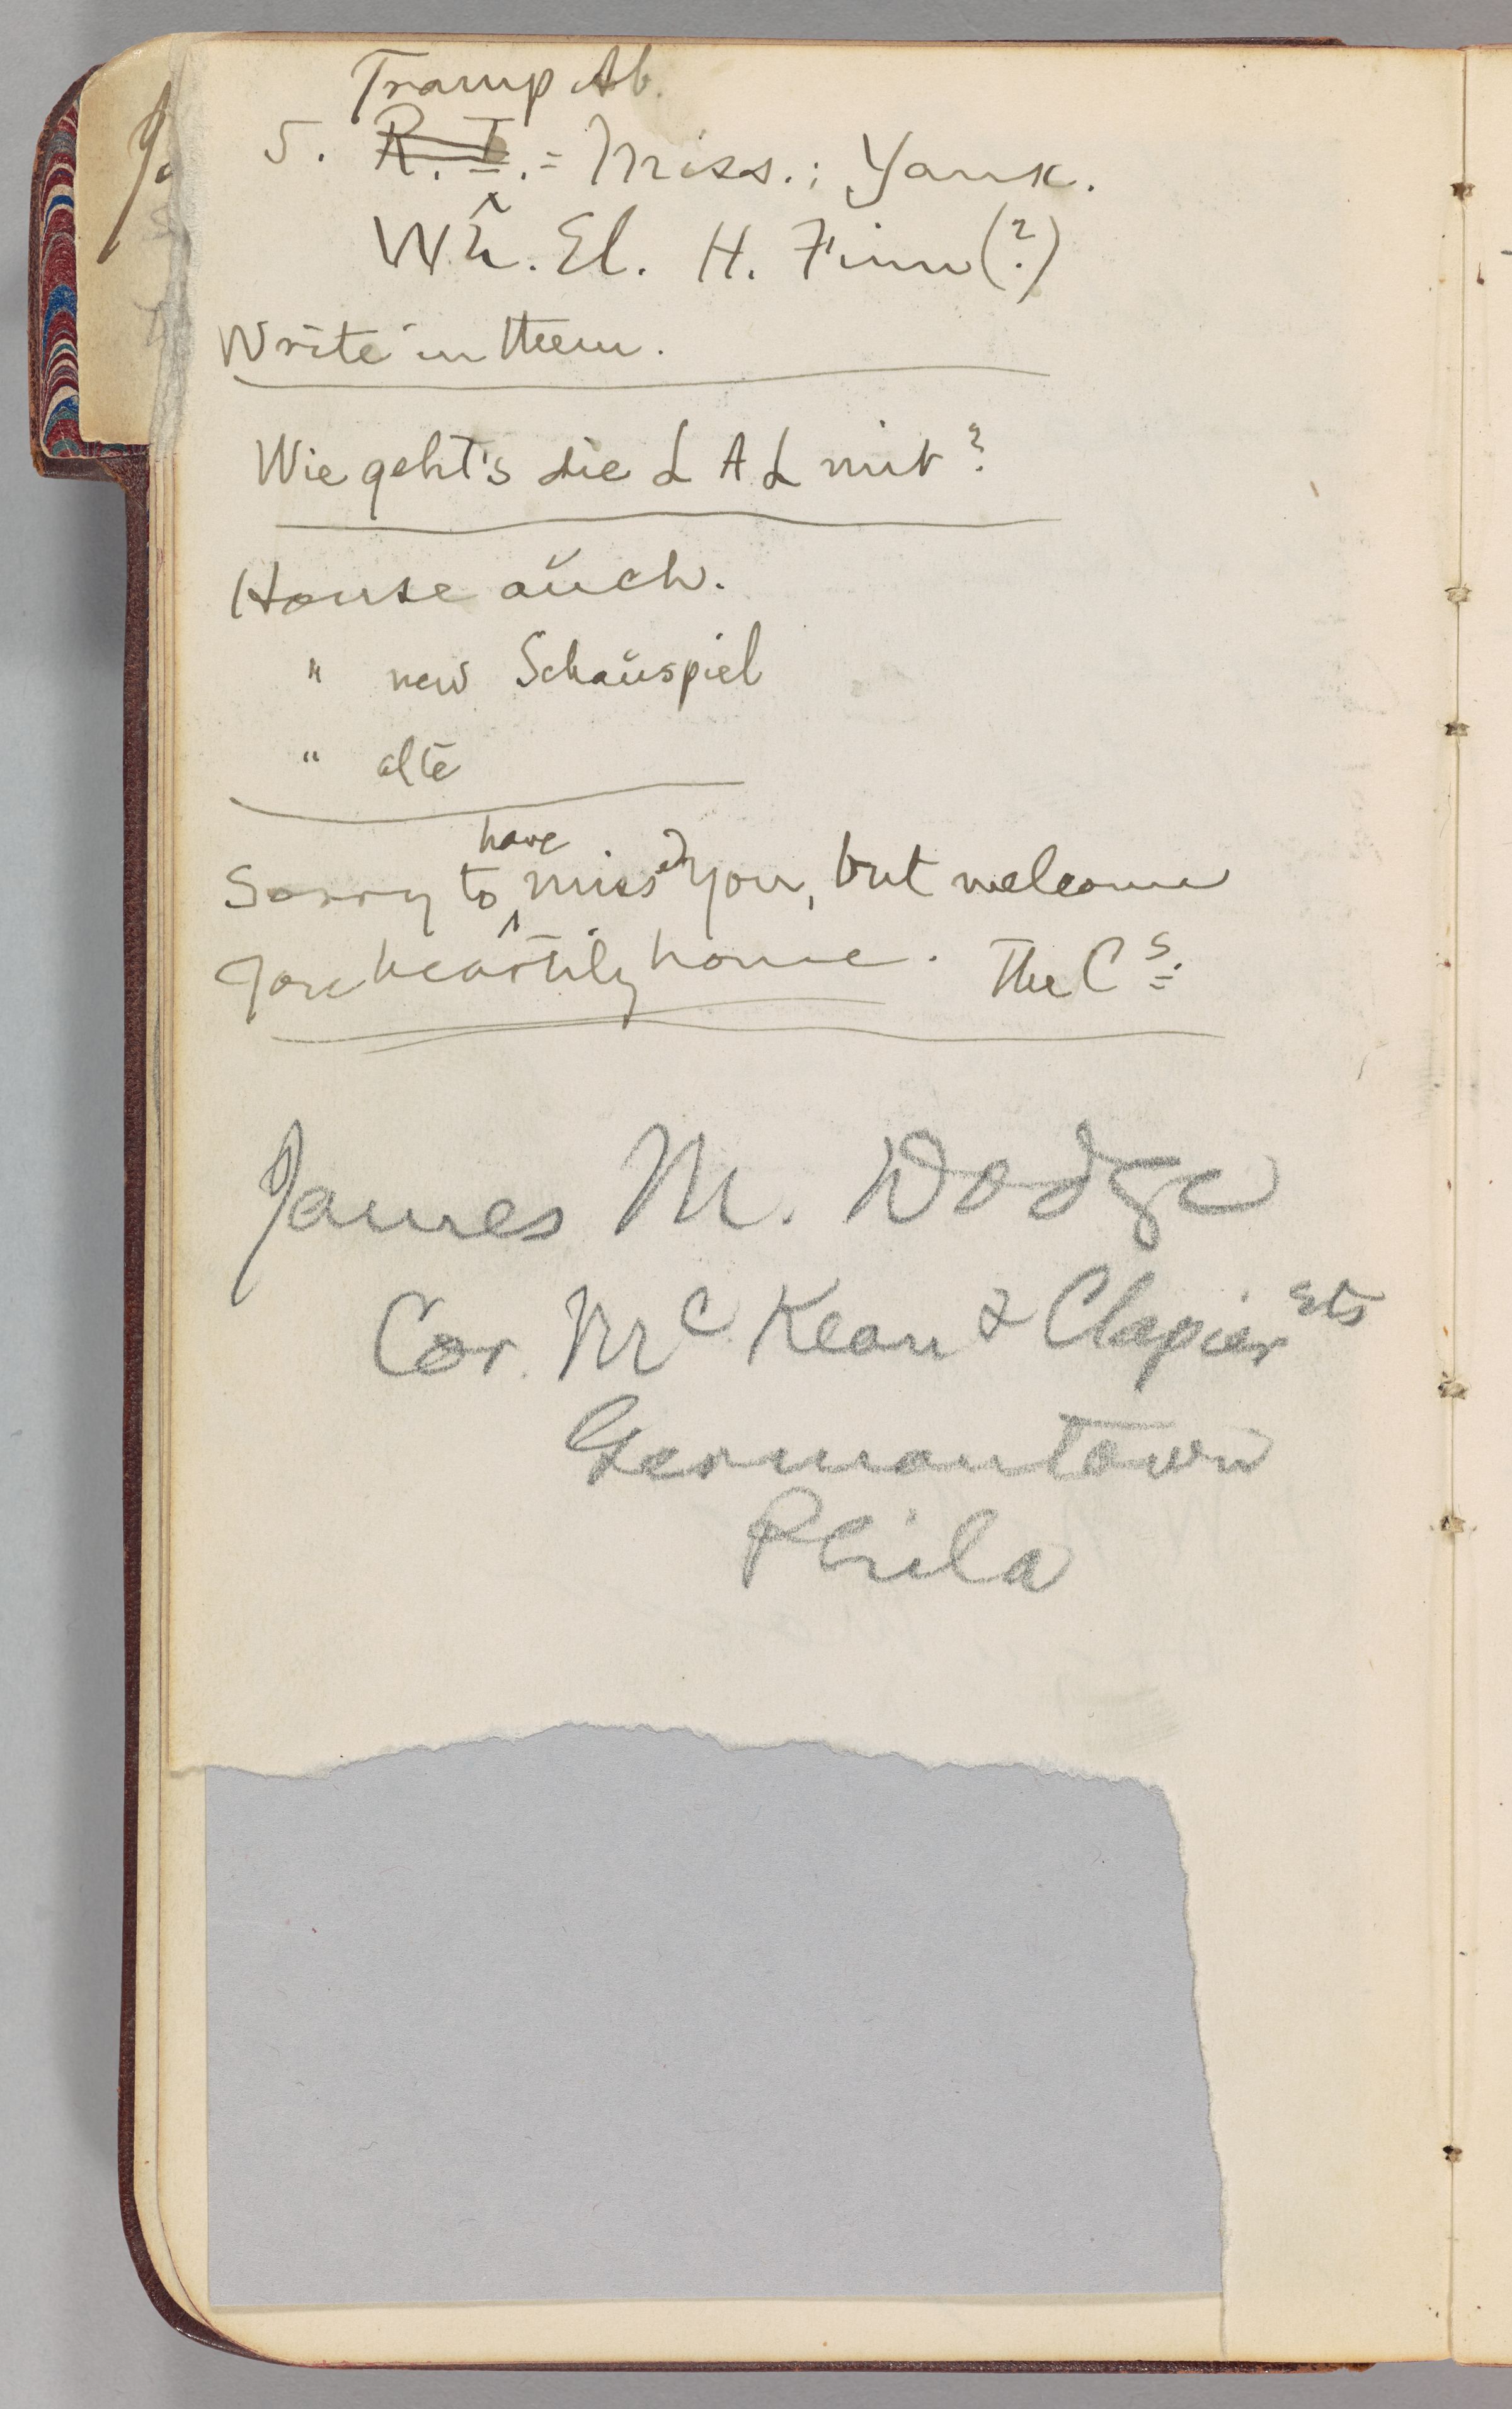 Tramp Ab.
5. R. I. = Miss.; Yank.
Wh. El. H. Finn (?)
Write in them.
Wie geht's die L A L mit?
House auch.
" new Schauspiel
" alte
Sorry to have missed you, but welcome
you heartily home. The Cs.
James M. Dodge
Cor. McKean & Clapier Sts
Germantown
Phila